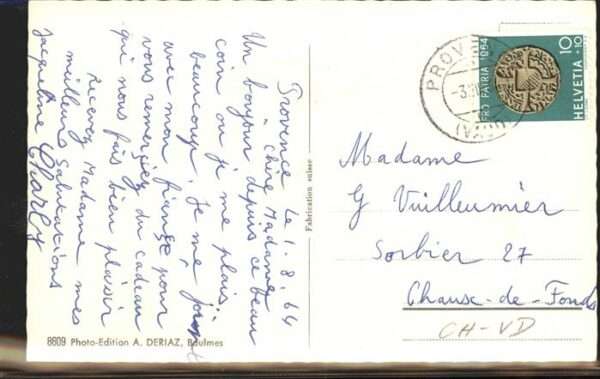 Provence Le 1.8.64
Chère Madame
Un bonjour depuis ce beau
coin ou je me plais
beaucoup. Je me joint
avec mon fiancé pour
vous remerciez du cadeau
qui nous fais bien plaisir
Recevez Madame mes
meilleurs salutations
Jacqueline Charly
8609 Photo-Edition A. DERIAZ, Baulmes
Fabrication suisse
PROV
(VAUD)
PRO PATRIA 1964
HELVETIA
10+10
Madame
G Vuilleumier
Sorbier 27
Chaux-de-Fonds
CH-VD